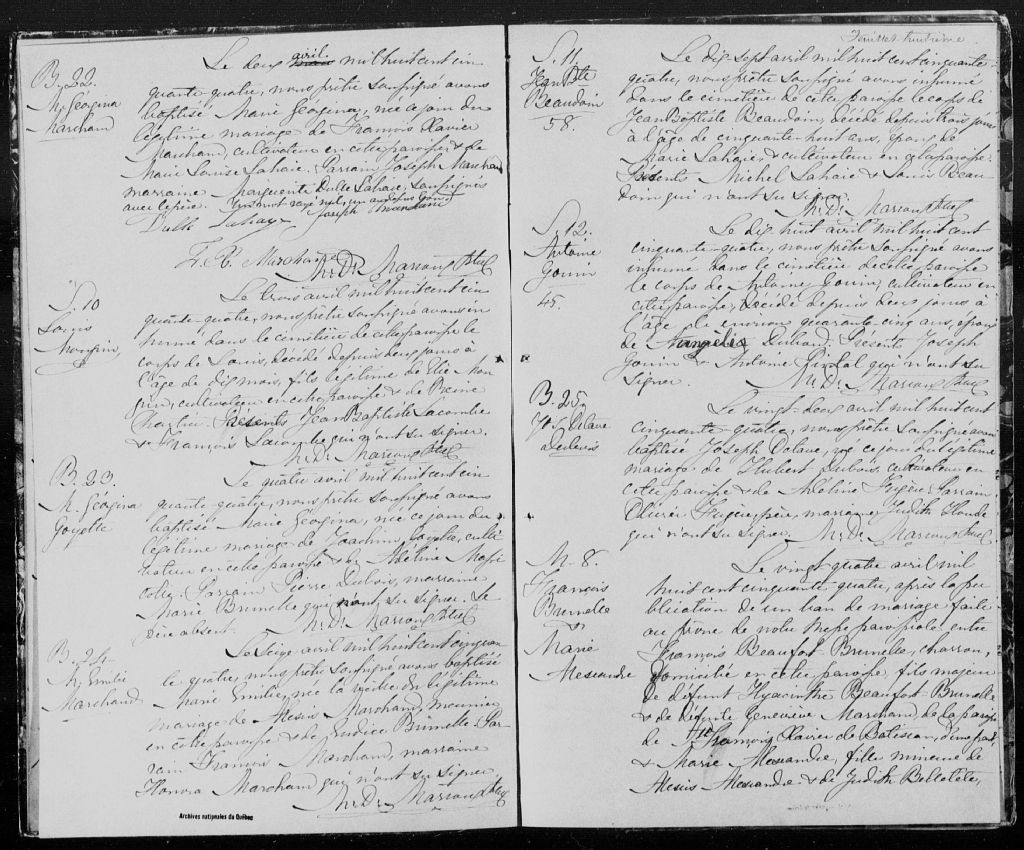 B. 22.
M. Géogina
Marchand
Le deux avril mil huit cent cin
quante quatre, nous prêtre soussigné avons
baptisé Marie Géogina, née ce jour du
légitime mariage de François Xavier
Marchand, cultivateur en cette paroisse & de
Marie Louise Lahaie. Parrain Joseph Marchand
marraine Marguerite Dulte Lahaie, soussignés
avec le père. Un mot rayé nul, un au dessus bon
Dulte Lahaye Joseph Marchand
F. X. Marchand
M. D. Marcoux Ptre
S. 10
Louis
Mongrin
Le trois avril mil huit cent cin
quante quatre, nous prêtre soussigné avons in
humé dans le cimetière de cette paroisse le
corps de Louis, décédé depuis deux jours à
l'âge de dix mois, fils légitime de Elie Mon
grin, cultivateur en cette paroisse & de Reine
Chartier. Présents Jean Baptiste Lacombe
& François Lacombe qui n'ont su signer.
M. D. Marcoux Ptre
B. 23.
M. Géogina
Goyette
Le quatre avril mil huit cent cin
quante quatre, nous prêtre soussigné avons
baptisé Marie Géogina, née ce jour du
légitime mariage de Joachim Goyette, culti
vateur en cette paroisse & de Adéline
Parrain Pierre Dubois, marraine
Marie Brunelle qui n'ont su signer. Le
Père absent. M. D. Marcoux Ptre
B. 24
M. Emélie
Marchand
Le Seize avril mil huit cent cinquan
te quatre, nous prêtre soussigné avons baptisé
Marie Emélie, née la veille du légitime
mariage de Alexis Marchand, meunier
en cette paroisse & de Brunelle. Par
rain François Marchand, marraine
Honora Marchand qui n'ont su signer
M. D. Marcoux Ptre
Archives nationales du Québec
Feuillet huitième
S. 11
Jean Bte
Beaudoin
58.
Le dix sept avril mil huit cent cinquante
quatre, nous prêtre soussigné avons inhumé
dans le cimetière de cette paroisse le corps de
Jean Baptiste Beaudoin, décédé depuis trois jours
à l'âge de cinquante huit ans, époux de
Marie Lahaie & cultivateur en cette paroisse.
Présents Michel Lahaie & Louis Beau
doin qui n'ont su signer.
M. D. Marcoux Ptre
S. 12.
Antoine
Gouin
45.
Le dix huit avril mil huit cent
cinquante quatre, nous prêtre soussigné avons
inhumé dans le cimetière de cette paroisse
le corps de Antoine Gouin, cultivateur en
cette paroisse, décédé depuis deux jours à
l'âge de environ quarante cinq ans, époux
de Angèle Duhaud. Présents Joseph
Gouin & Antoine qui n'ont su
signer. M. D. Marcoux Ptre
B. 25.
Js. Octave
Dubois
Le vingt-deux avril mil huit cent
cinquante quatre, nous prêtre soussigné avons
baptisé Joseph Octave, né ce jour du légitime
mariage de Hubert Dubois, cultivateur en
cette paroisse & de Adéline Frigère. Parrain
Olivier Frigère, père, marraine Judith Houde
qui n'ont su signer. M. D. Marcoux Ptre
M. 8.
François
Brunelle
&
Marie
Alexandre
Le vingt quatre avril mil
huit cent cinquante quatre, après la pu
blication de un ban de mariage faite
au prône de notre messe paroissiale entre
François Beaufort Brunelle, charron,
domicilié en cette paroisse, fils majeur
de défunt Hyacinthe Beaufort Brunelle
& de défunte Geneviève Marchand de la paroisse
de St François Xavier de Batiscan, d'une part,
& Marie Alexandre, fille mineure de
Alexis Alexandre & de Judith Belletête,